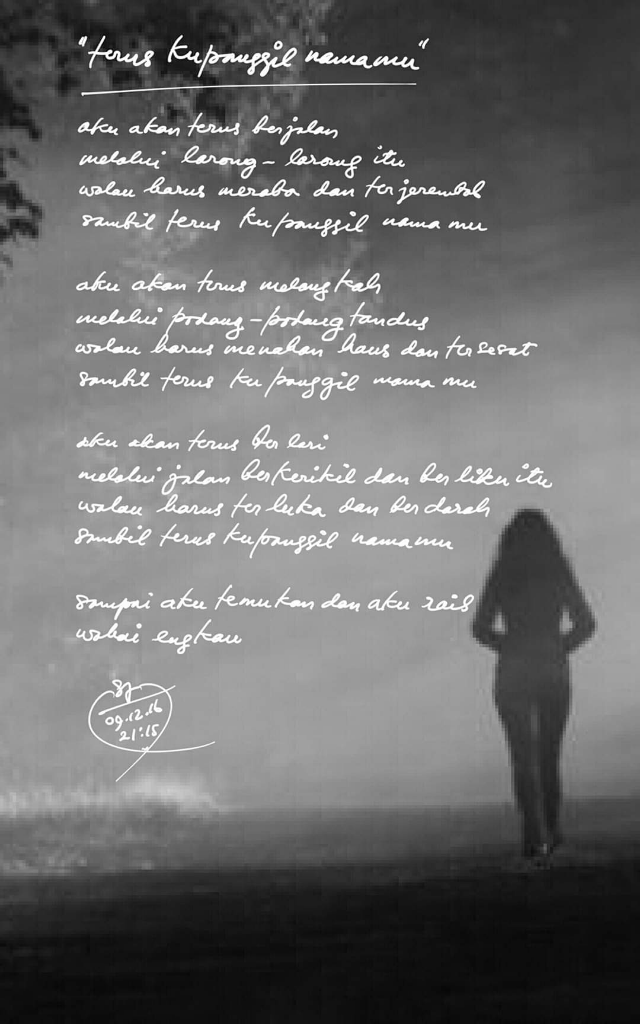 "terus kupanggil namamu"
aku akan terus berjalan
melalui lorong-lorong itu
walau harus meraba dan terjerembab
sambil terus kupanggil namamu
aku akan terus melangkah
melalui padang-padang tandus
walau harus menahan haus dan tersesat
sambil terus kupanggil namamu
aku akan terus berlari
melalui jalan berkerikil dan berliku itu
walau harus terluka dan berdarah
sambil terus kupanggil namamu
sampai aku temukan dan aku raih
wahai engkau
09.12.16
21:15